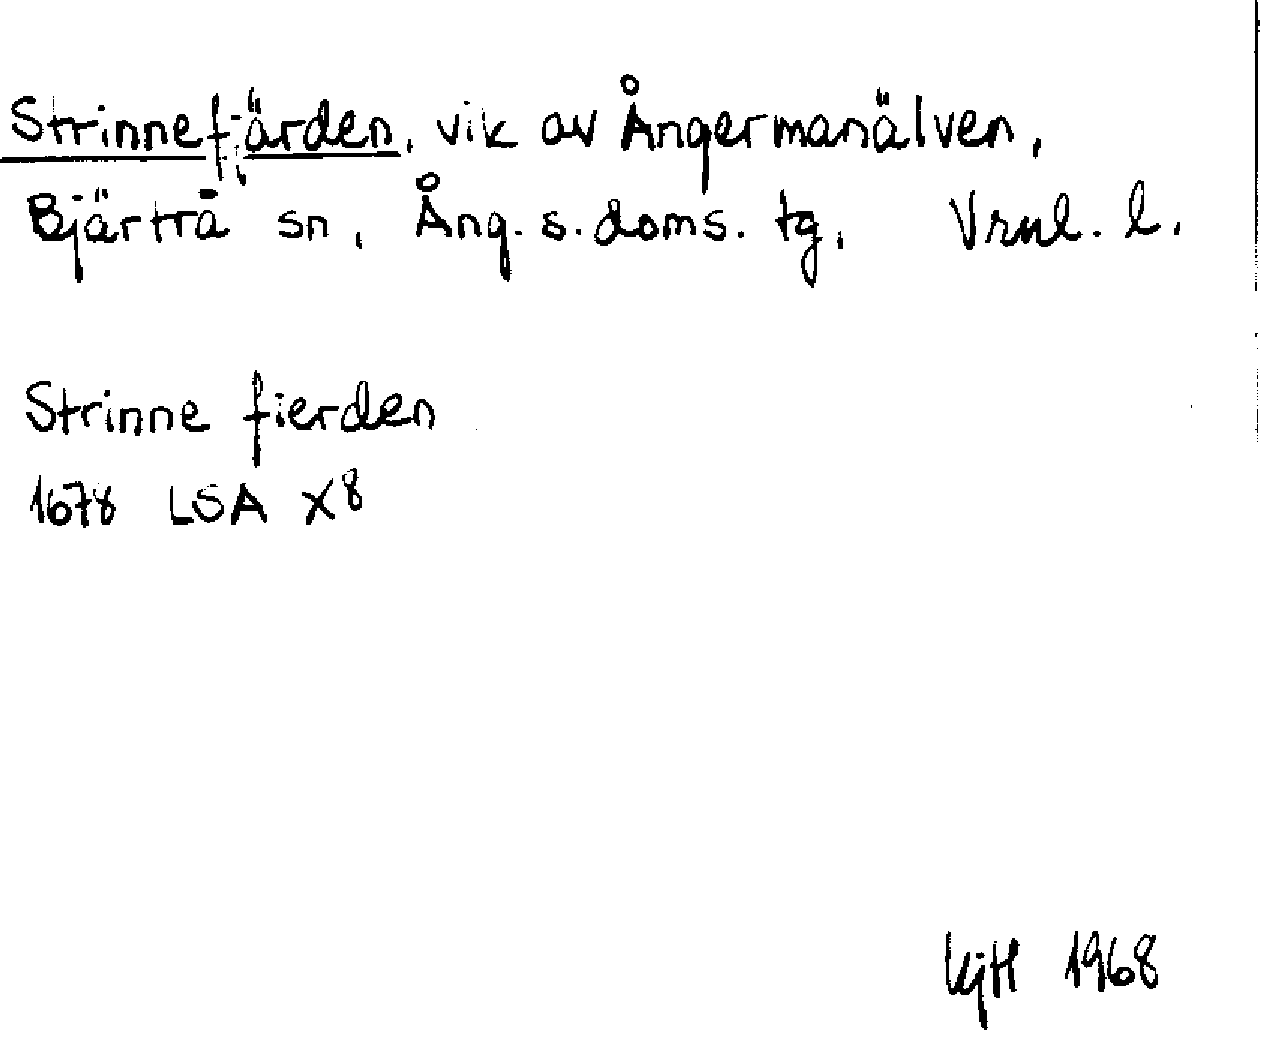 Strinnefjärden, vik av Ångermanälven,
Bjärtrå sn, Ång. s. doms. tg, Vrnl. l.
Strinne fierden
1678 LSA X8
KjH 1968